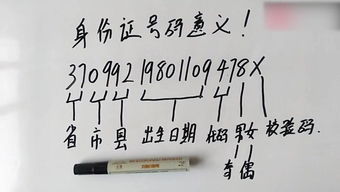 身份证号码意义!
37099219801109478X
省 市 县 出生日期 代码 男女 校验码.
奇偶